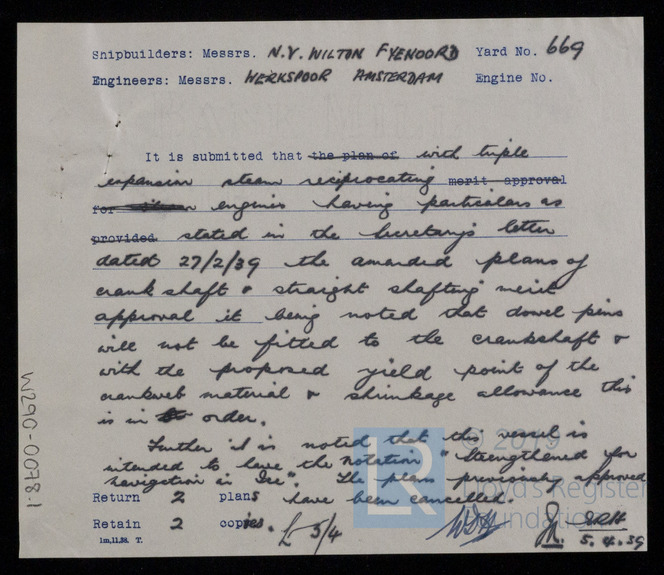 Shipbuilders: Messrs. N.V. WILTON FYENOORD Yard No. 669
Engineers: Messrs. WERKSPOOR AMSTERDAM Engine No.
It is submitted that the plan of with triple
expansion steam reciprocating merit approval
for engines having particulars as
provided stated in the Secretary's letter
dated 27/2/39 the amended plans of
crank shaft & straight shafting merit
approval it being noted that dowel pins
will not be fitted to the crankshaft &
with the proposed yield point of the
crankweb material & shrinkage allowance this
is in order.
Further it is noted that this vessel is
intended to have the notation "Strengthened for
navigation in Ice". The plans previously approved
have been cancelled.
Return 2 plans
Retain 2 copies. 5/4
1m,11.38. T.
5.4.39
W290-0078.1
© 2019
Lloyd's Register
Foundation
LR